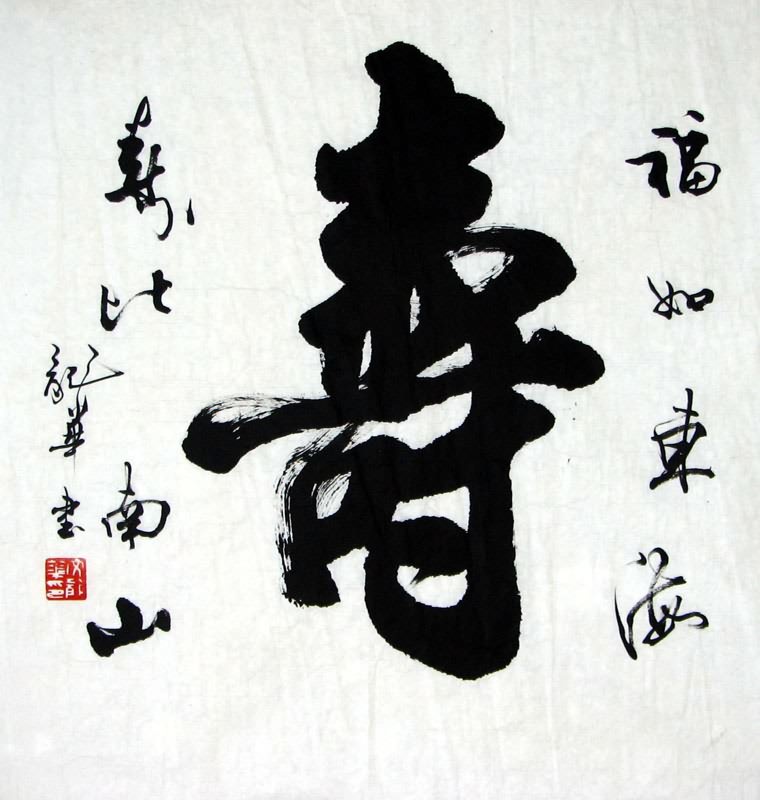 福如東海
壽
壽比南山
龍華書